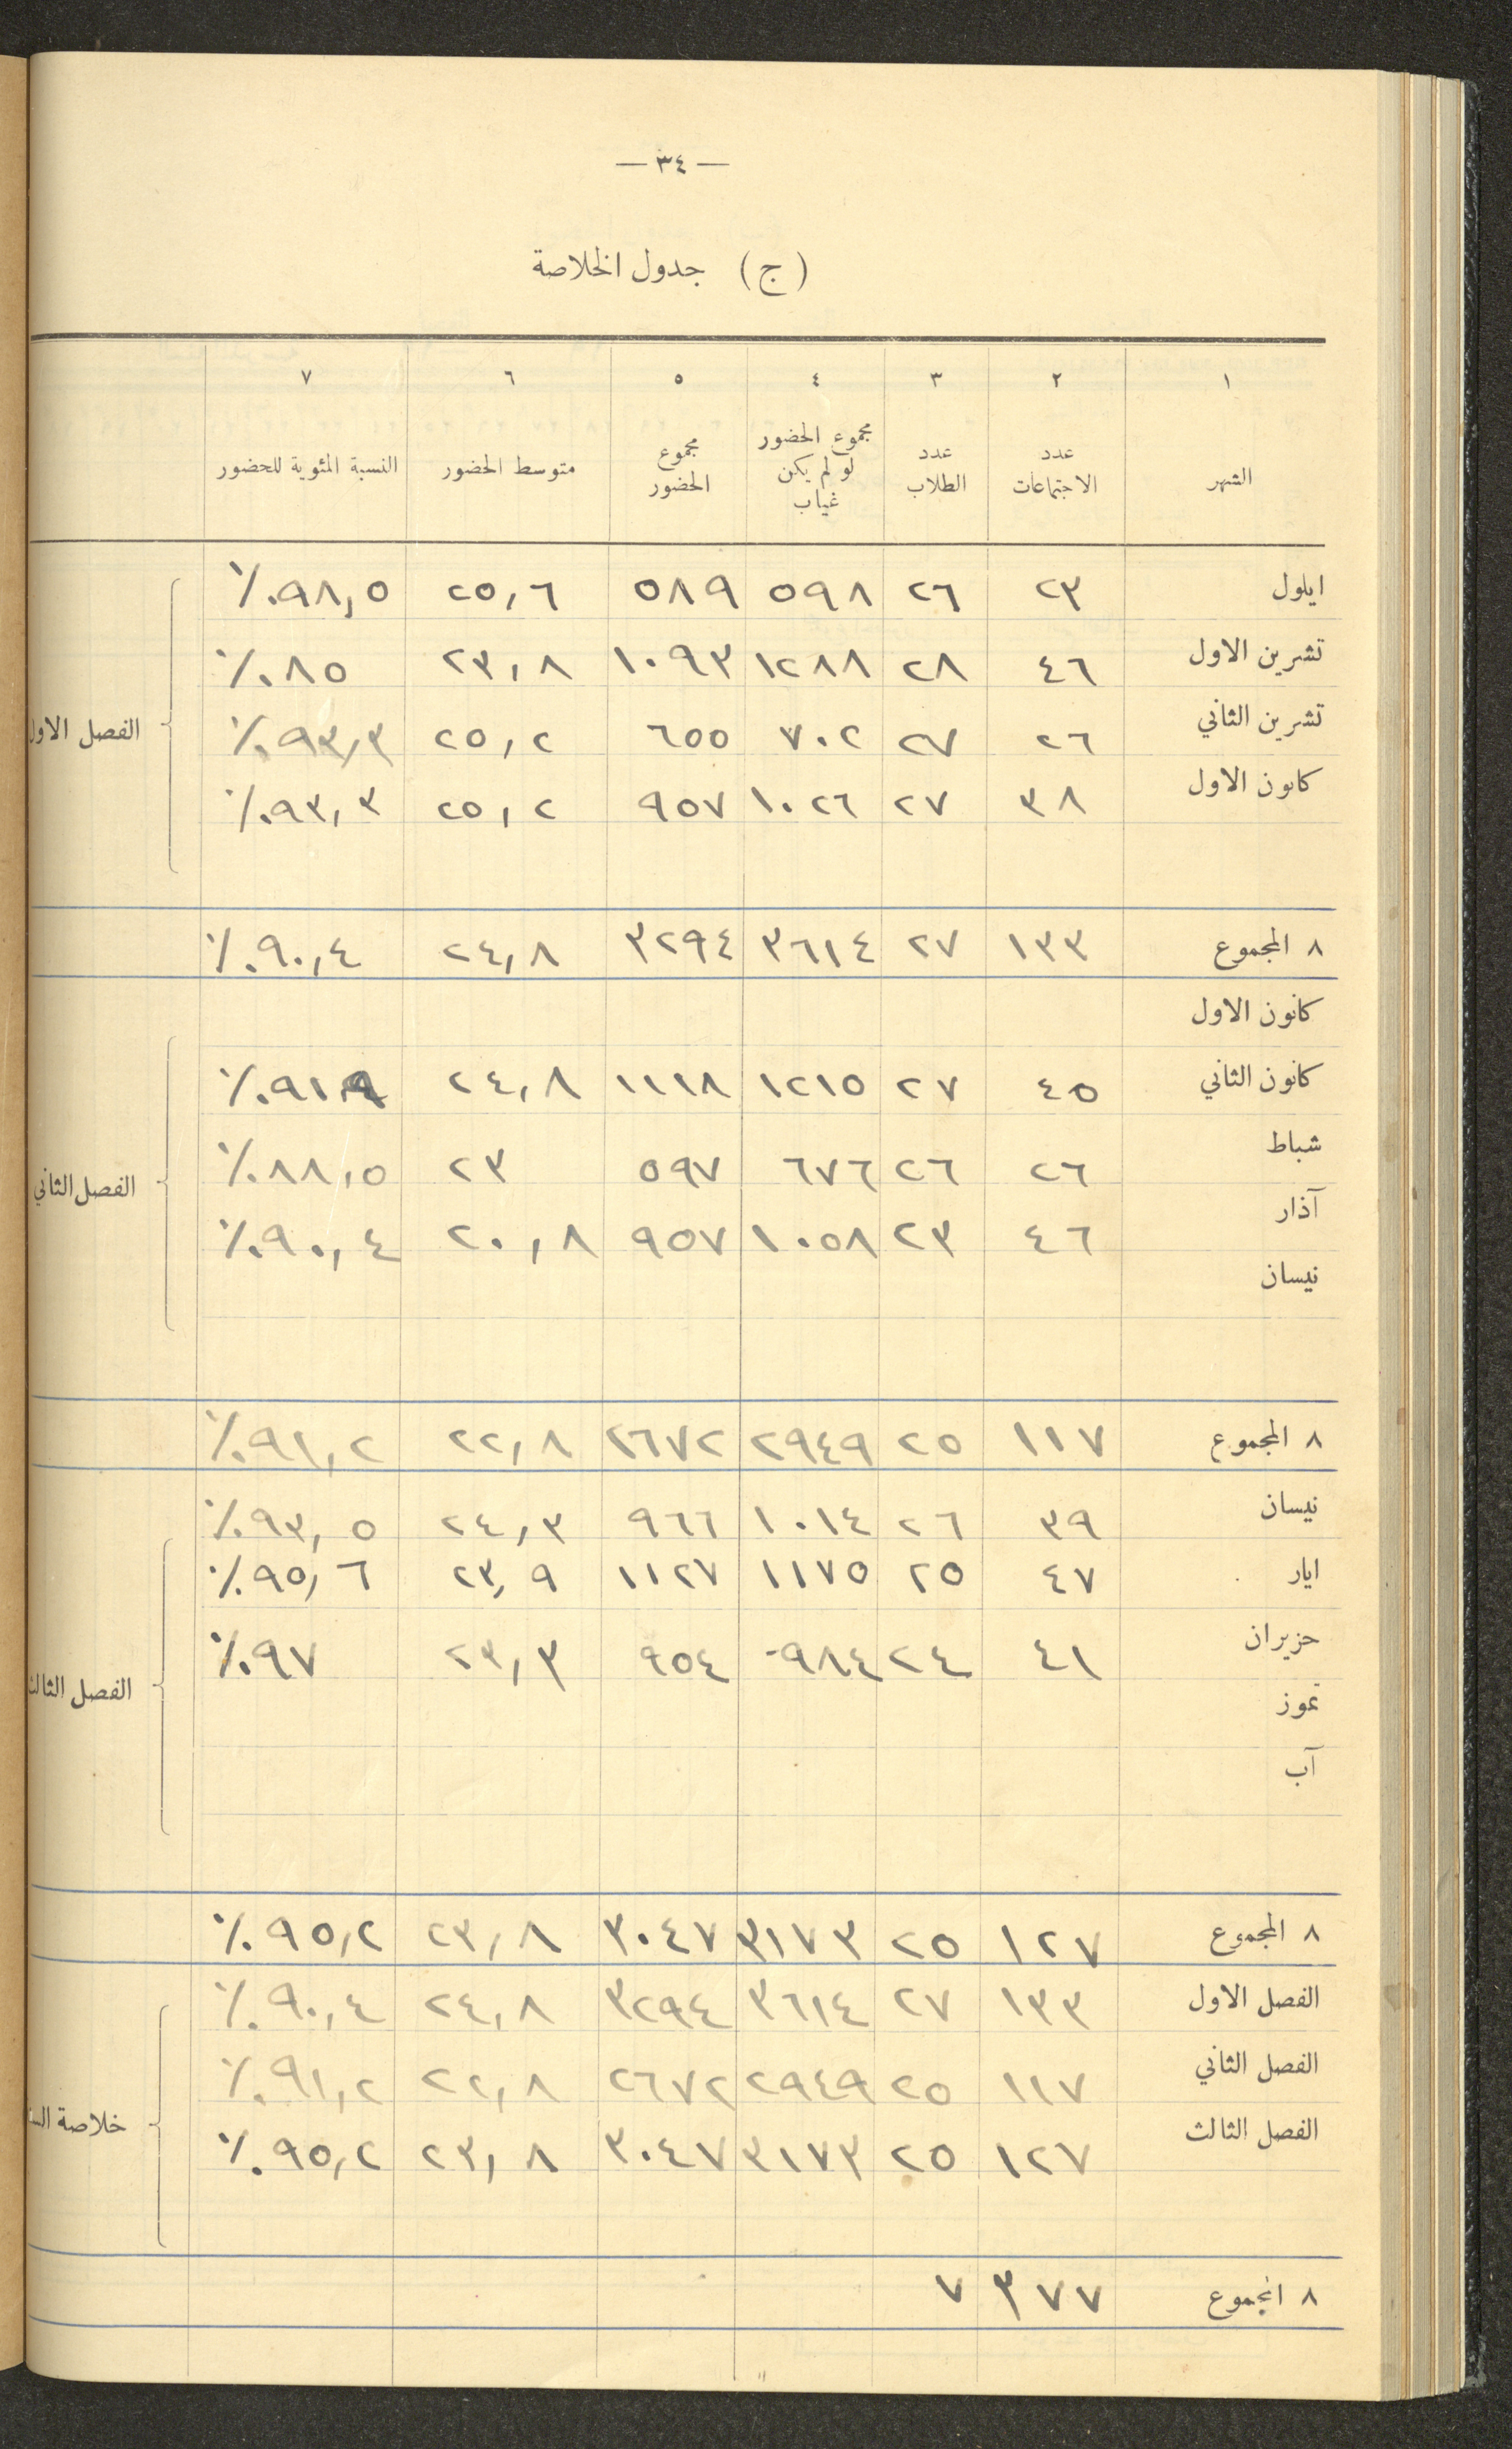 — ٣٤ —
(ج) جدول الخلاصة
١ ٢ ٣ ٤ ٥ ٦ ٧
الشهر | عدد الاجتماعات | عدد الطلاب | مجموع الحضور لو لم يكن غياب | مجموع الحضور | متوسط الحضور | النسبة المئوية للحضور
ايلول ٢٣ ٢٦ ٥٩٨ ٥٨٩ ٢٥,٦ ٩٨,٥٪
تشرين الاول ٤٦ ٢٨ ١٢٨٨ ١٠٩٣ ٢٣,٨ ٨٥٪
تشرين الثاني ٢٦ ٢٧ ٧٠٢ ٦٥٥ ٢٥,٢ ٩٣,٣٪
كانون الاول ٣٨ ٢٧ ١٠٢٦ ٩٥٧ ٢٥,٢ ٩٣,٣٪
الفصل الاول
٨ المجموع ١٣٣ ٢٧ ٣٦١٤ ٣٢٩٤ ٢٤,٨ ٩٠,٤٪
كانون الاول
كانون الثاني ٤٥ ٢٧ ١٢١٥ ١١١٨ ٢٤,٨ ٩١,٩٪
شباط ٢٦ ٢٦ ٦٧٦ ٥٩٧ ٢٣ ٨٨,٥٪
آذار ٤٦ ٢٣ ١٠٥٨ ٩٥٧ ٢٠,٨ ٩٠,٤٪
نيسان
الفصل الثاني
٨ المجموع ١١٧ ٢٥ ٢٩٤٩ ٢٦٧٢ ٢٢,٨ ٩١,٢٪
نيسان ٣٩ ٢٦ ١٠١٤ ٩٦٦ ٢٤,٣ ٩٣,٥٪
ايار ٤٧ ٢٥ ١١٧٥ ١١٢٧ ٢٣,٩ ٩٥,٦٪
حزيران ٤١ ٢٤ ٩٨٤ ٩٥٤ ٢٣,٣ ٩٧٪
تموز
آب
الفصل الثالث
٨ المجموع ١٢٧ ٢٥ ٣١٧٣ ٣٠٤٧ ٢٣,٨ ٩٥,٢٪
الفصل الاول ١٣٣ ٢٧ ٣٦١٤ ٣٢٩٤ ٢٤,٨ ٩٠,٤٪
الفصل الثاني ١١٧ ٢٥ ٢٩٤٩ ٢٦٧٢ ٢٢,٨ ٩١,٢٪
الفصل الثالث ١٢٧ ٢٥ ٣١٧٣ ٣٠٤٧ ٢٣,٨ ٩٥,٢٪
خلاصة
٨ المجموع ٣٧٧ ٧